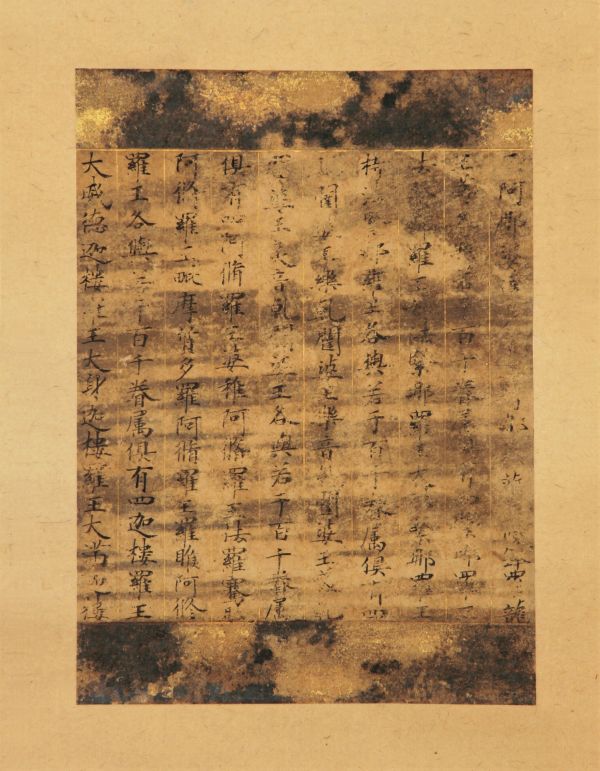 阿那婆 龍
各 若干百千眷属 有 緊那羅王
法緊那羅王 法緊那羅王大法緊那羅王
持法 那羅王各與若干百千眷属俱有四
闥婆王樂乹闥婆王樂音乹闥婆王美乹
闥婆王美音乹闥婆王各與若干百千眷属
俱有四阿脩羅王婆稚阿脩羅王佉羅騫馱
阿脩羅王毗摩質多羅阿脩羅王羅睺阿脩
羅王各與若干百千眷属俱有四迦樓羅王
大威德迦樓羅王大身迦樓羅王大滿迦樓